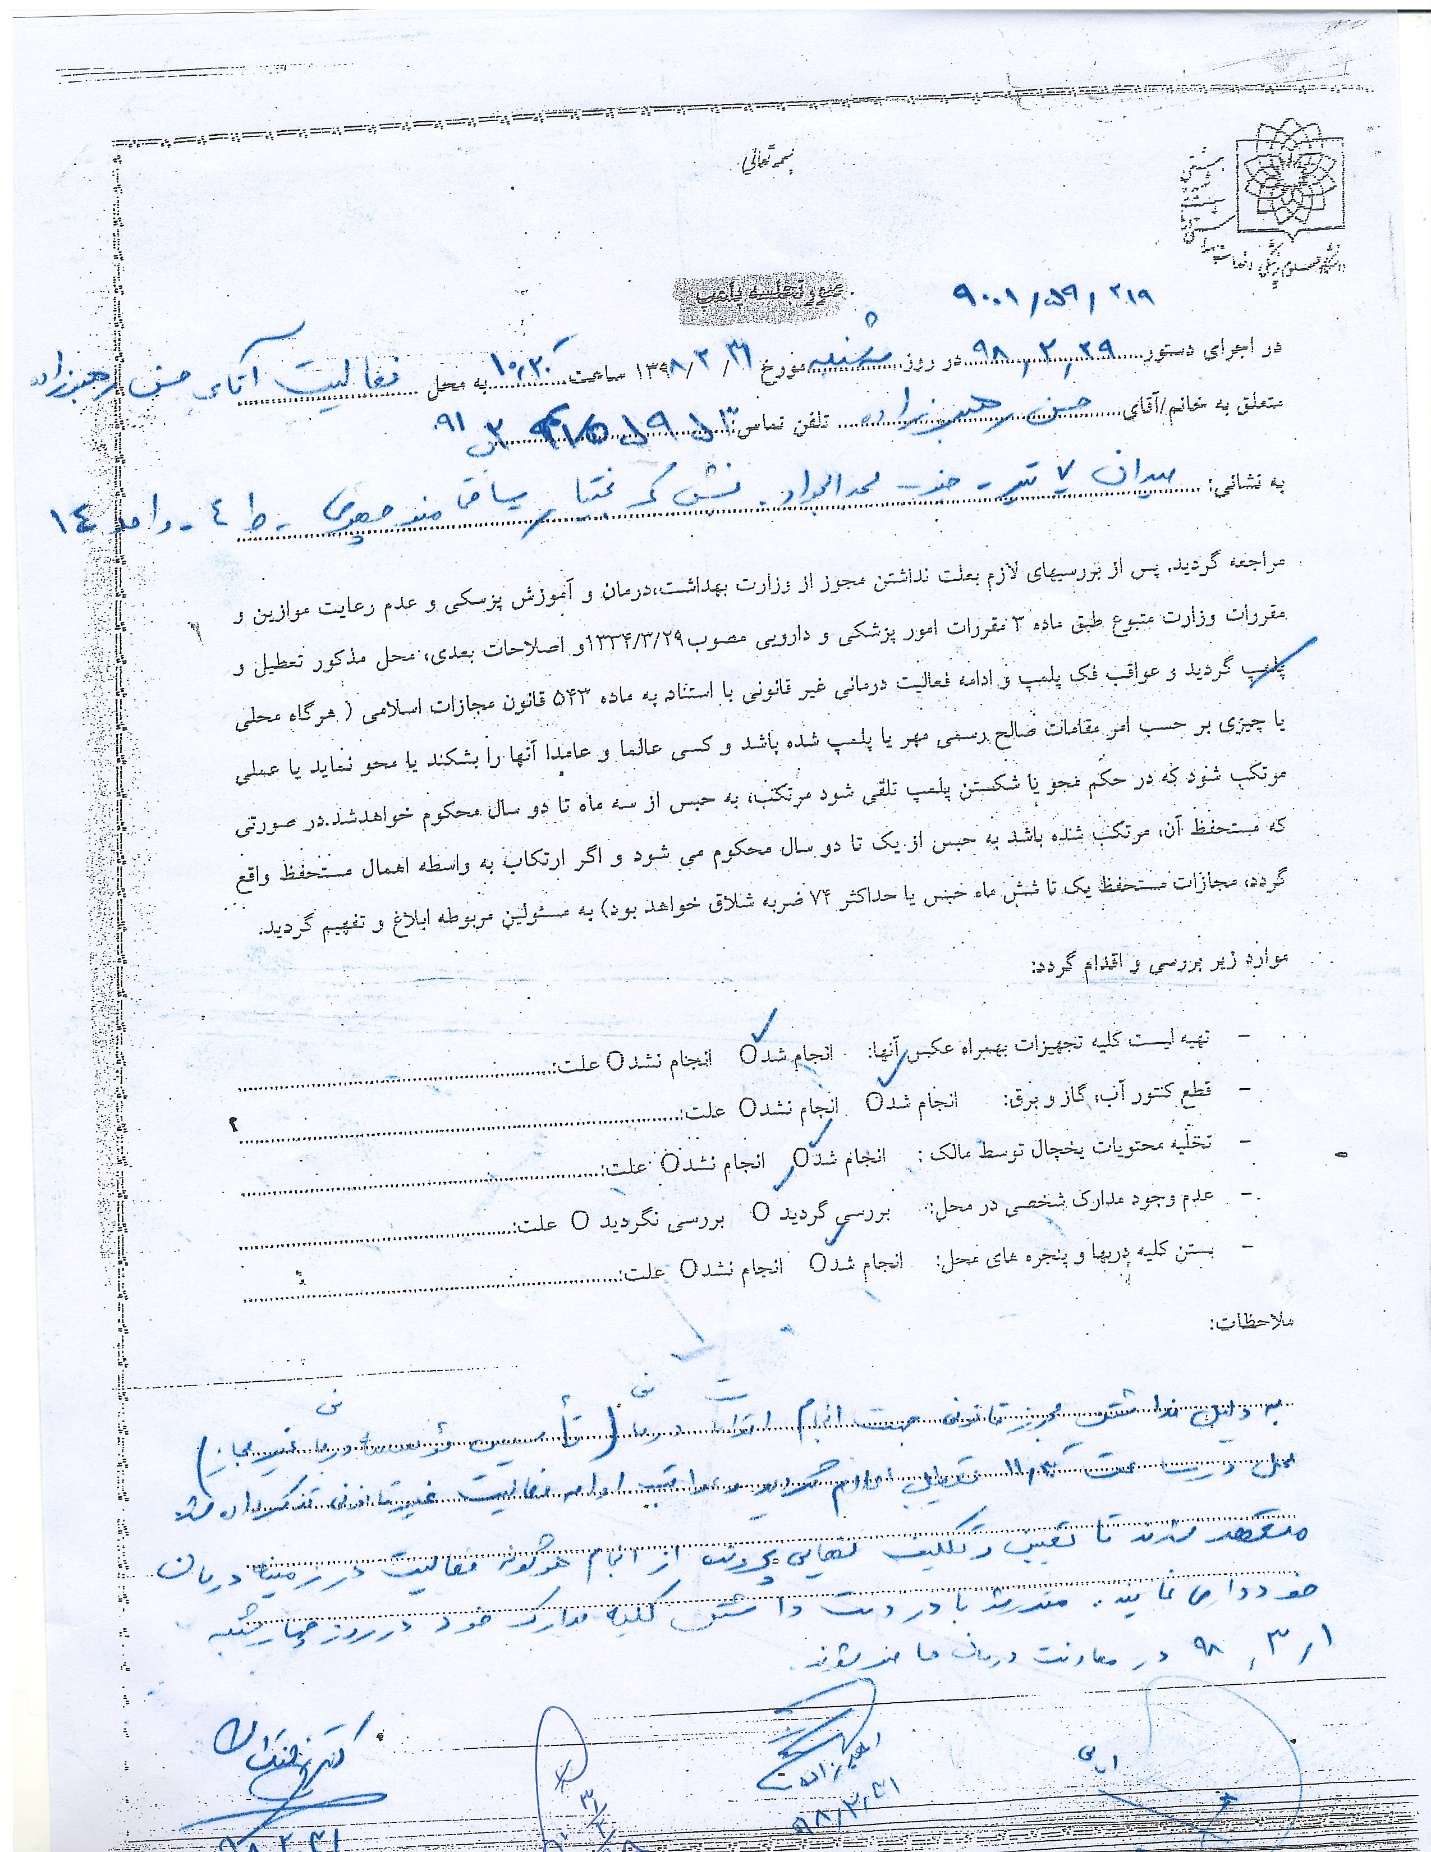 بسمه تعالی
دانشگاه علوم پزشکی و خدمات
صورتجلسه پلمب
۹۰۰۱/۵۹/۲۱۹
در اجرای دستور ۹۸/۲/۲۹ در روز سه شنبه مورخ ۱۳۹۸/۲/۳۱ ساعت ۱۰:۳۰ به محل فعالیت آقای حسن رهبرزاده
متعلق به خانم/آقای حسن رهبرزاده تلفن تماس:
به نشانی: میدان ۷ تیر - جنب محمد الجواد - نبش ک بختیار - ساختمان منوچهری - ط ٤ - واحد ١٤
مراجعه گردید. پس از بررسیهای لازم بعلت نداشتن مجوز از وزارت بهداشت،درمان و آموزش پزسکی و عدم رعایت موازین و
مقررات وزارت متبوع طبق ماده ۳ مقررات امور پزشکی و دارویی مصوب ۱۳۳۴/۳/۲۹و اصلاحات بعدی، محل مذکور تعطیل و
پلمپ گردید و عواقب فک پلمپ و ادامه فعالیت درمانی غیر قانونی با استناد به ماده ۵۴۳ قانون مجازات اسلامی ( هرگاه محلی
یا چیزی بر حسب امر مقامات صالح رسمی مهر یا پلمپ شده باشد و کسی عالما و عامدا آنها را بشکند یا محو نماید یا عملی
مرتکب شود که در حکم محو یا شکستن پلمپ تلقی شود مرتکب، به حبس از سه ماه تا دو سال محکوم خواهدشد.در صورتی
که مستحفظ آن، مرتکب شده باشد به حبس از یک تا دو سال محکوم می شود و اگر ارتکاب به واسطه اهمال مستحفظ واقع
گردد، مجازات مستحفظ یک تا شش ماه حبس یا حداکثر ۷۴ ضربه شلاق خواهد بود) به مسئولین مربوطه ابلاغ و تفهیم گردید.
موارد زیر بررسی و اقدام گردد:
- تهیه لیست کلیه تجهیزات بهمراه عکس آنها: انجام شد O انجام نشد O علت:
- قطع کنتور آب، گاز و برق: انجام شد O انجام نشد O علت:
- تخلیه محتویات یخچال توسط مالک : انجام شد O انجام نشد O علت:
- عدم وجود مدارک شخصی در محل: بررسی گردید O بررسی نگردید O علت:
- بستن کلیه دربها و پنجره های محل: انجام شد O انجام نشد O علت:
ملاحظات:
به دلیل نداشتن مجوز قانونی جهت انجام اقدامات درمانی (تأسیس مؤسسه درمانی غیر مجاز)
محل در ساعت ۱۱:۳۰ تعطیل اعلام گردید و عواقب ادامه فعالیت غیرقانونی تذکر داده شد
متعهد شدند تا تعیین و تکلیف نهایی پرونده از انجام هرگونه فعالیت در زمینه درمان
خودداری نمایند. مقرر شد با در دست داشتن کلیه مدارک خود در روز چهارشنبه
۹۸/۳/۱ در معاونت درمان حاضر شوند.
۹۸/۲/۳۱
۹۸/۲/۳۱